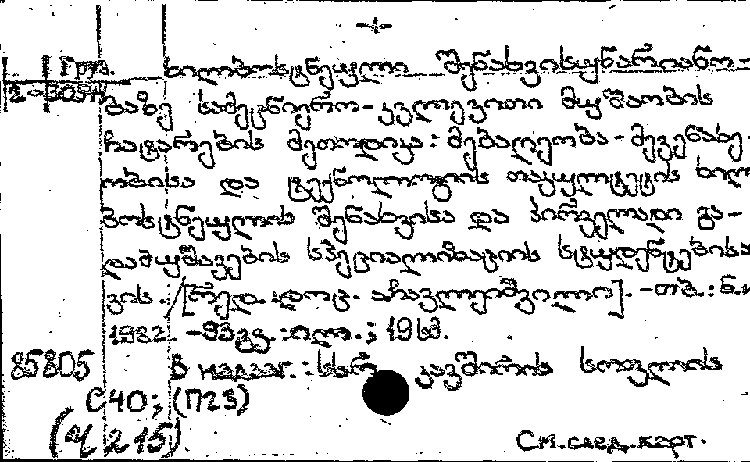 Груз.
2-30544
ხილბოსტნეული შენახვისუნარიანო-
ბაზე სამეცნიერო-კვლევითი მუშაობის
ჩატარების მეთოდიკა: მებაღეობა-მევენახე-
ობისა და ტექნოლოგიის ფაკულტეტის ხილ
ბოსტნეულის შენახვისა და პირველადი გა-
დამუშავების სპეციალიზაციის სტუდენტებისა
ვის. [რედ. დოც. არავლეიშვილი]. -თბ.: ბ.
1982. -93გვ. :ილ.; 19სმ.
85805 В надзаг.: სსრ კავშირის სოფლის
С40; (П23)
(4 215)
См.след.карт.